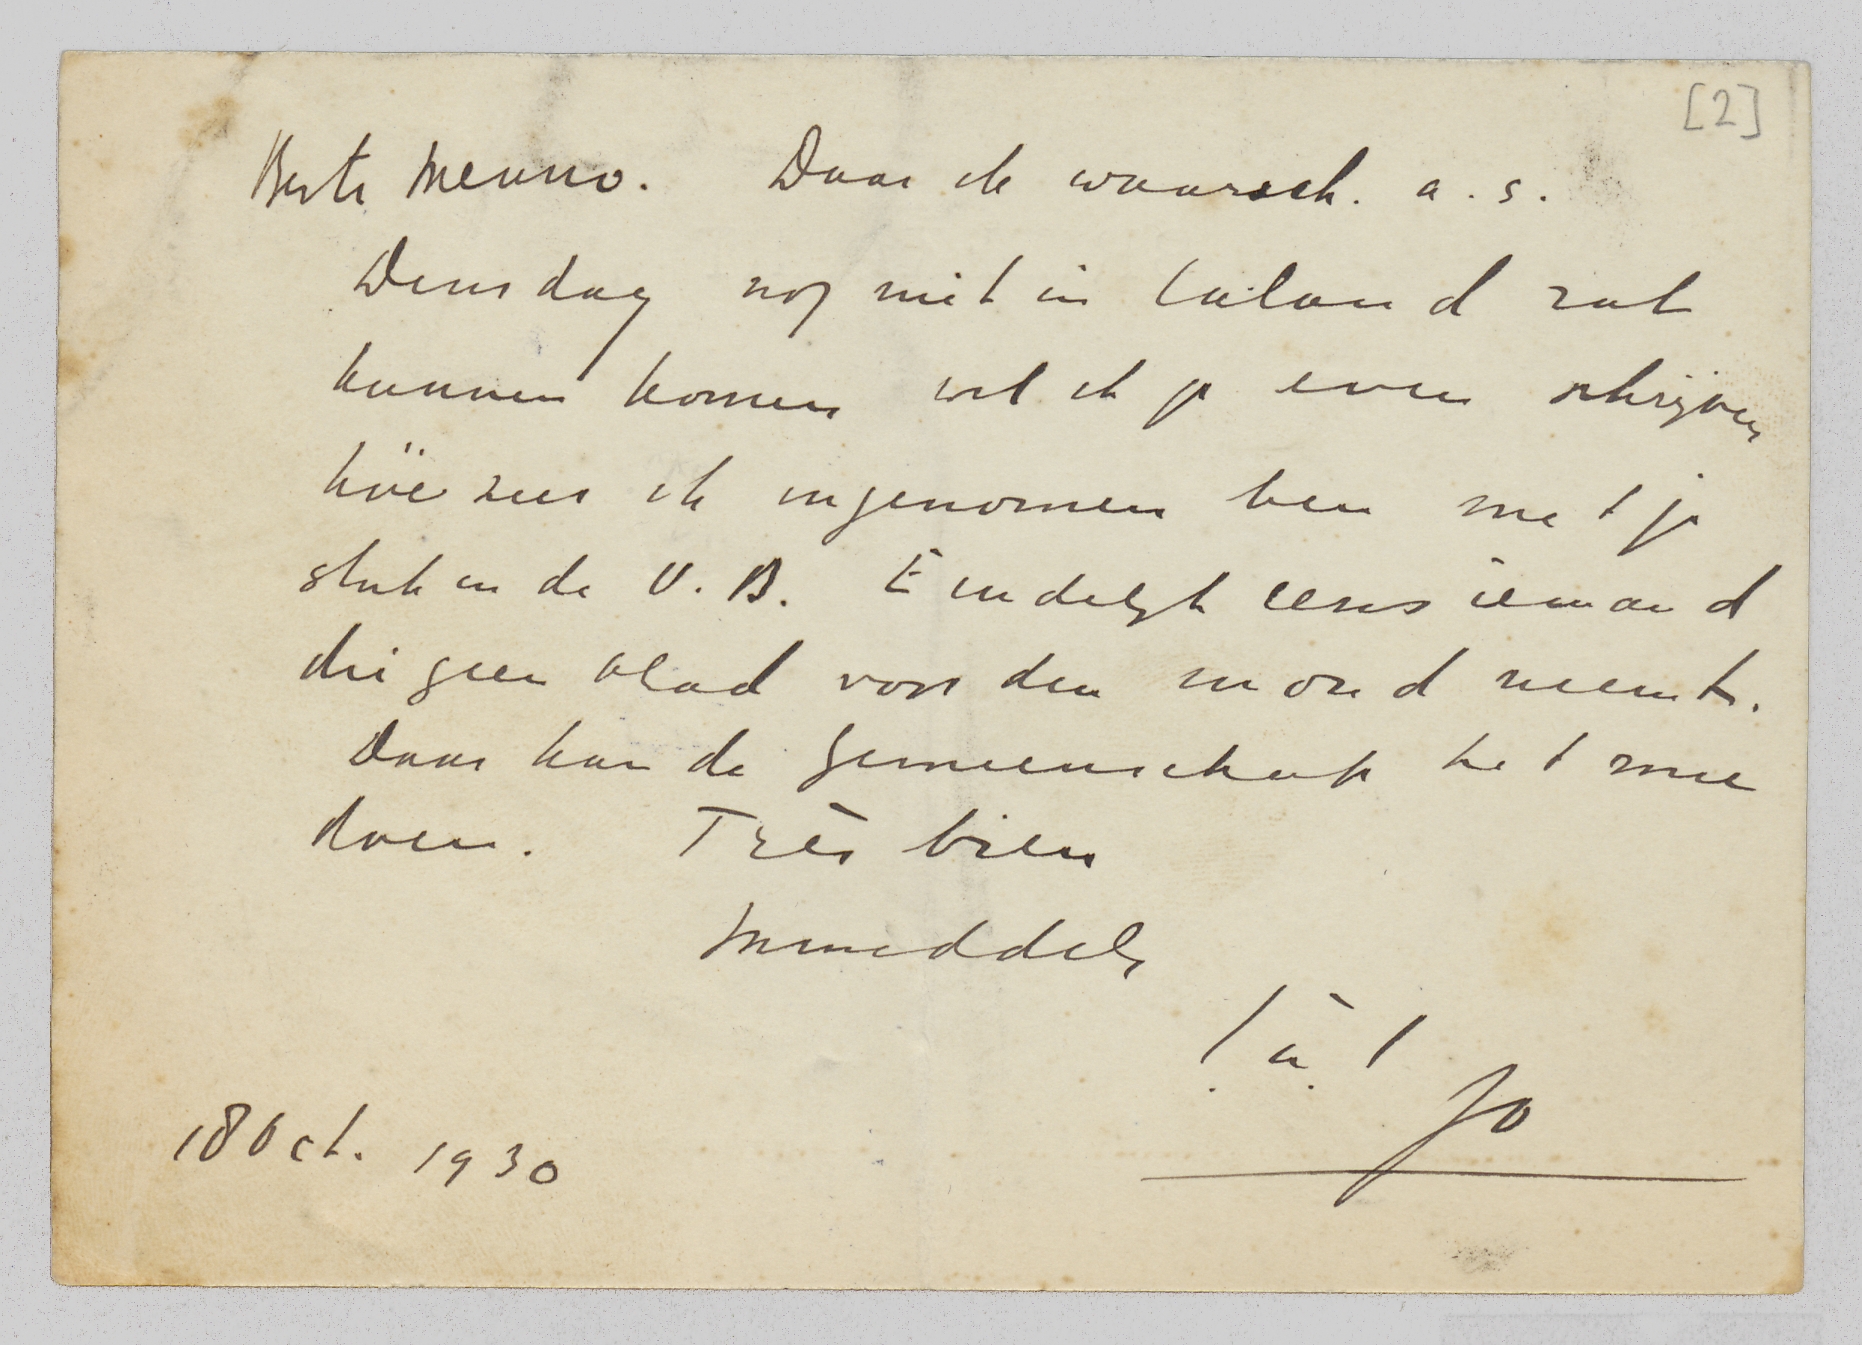 [2]
Beste Menno. Daar ik waarsch. a.s.
Dinsdag nog niet in Eiland zal
kunnen komen wil ik je even schrijven
hoe zeer ik ingenomen ben met je
stuk in de V.B. Eindelijk eens iemand
die geen blad voor den mond neemt.
Daar kan de Gemeenschap het mee
doen. Très bien
Inmiddels
t. à. t
Jo
18 Oct. 1930